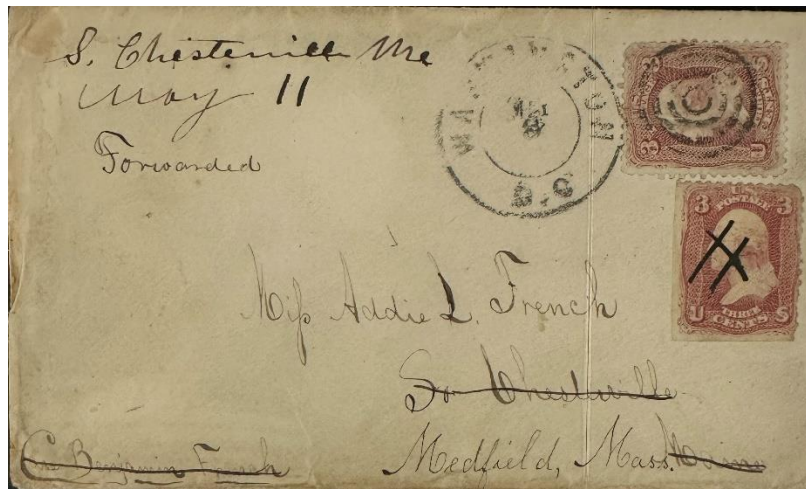 S. Chesterville Me
May 11
Forwarded
WASHINGTON
D.C
3 3
U.S.
POSTAGE
THREE
CENTS
U S
Miſs Addie L. French
So Chesterville
Medfield, Mass. Maine
Benjamin French